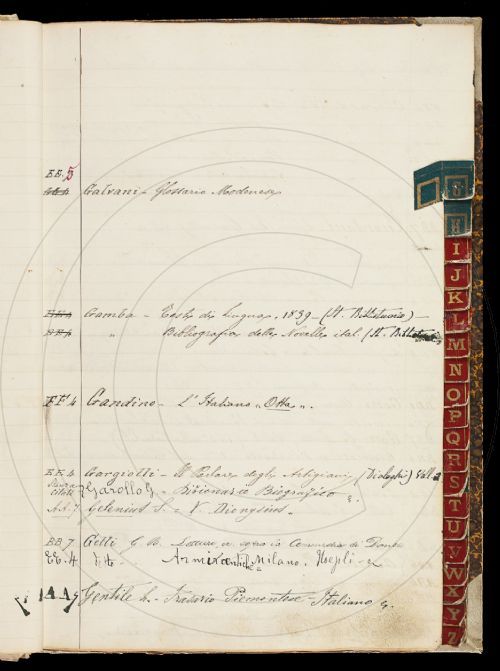 EE.5
Galvani - Glossario Modenese
Gamba - Testi di Lingua, 1839 - (St. Bibliteurio) -
" Bibliografia delle Novelle ital. (St.
FF. 4 Gandino - L'Italiano "Otto".
EE.4 Gargiolli - Il Parlare degli Artigiani (Dialoghi) Vol. 2
Garollo G. - Dizionario Biografico
AA.7 Gelenius S. - V. Dionysius
BB 7. Gelli G. B. Letture sopra la Commedia di Dante
EE. 4 dito - Armi antiche Milano. Hoepli -
Gentile L. - Frasario Piemontese - Italiano
G
H
I
J
K
L
M
N
O
P
Q
R
S
T
U
V
W
X
Y
Z